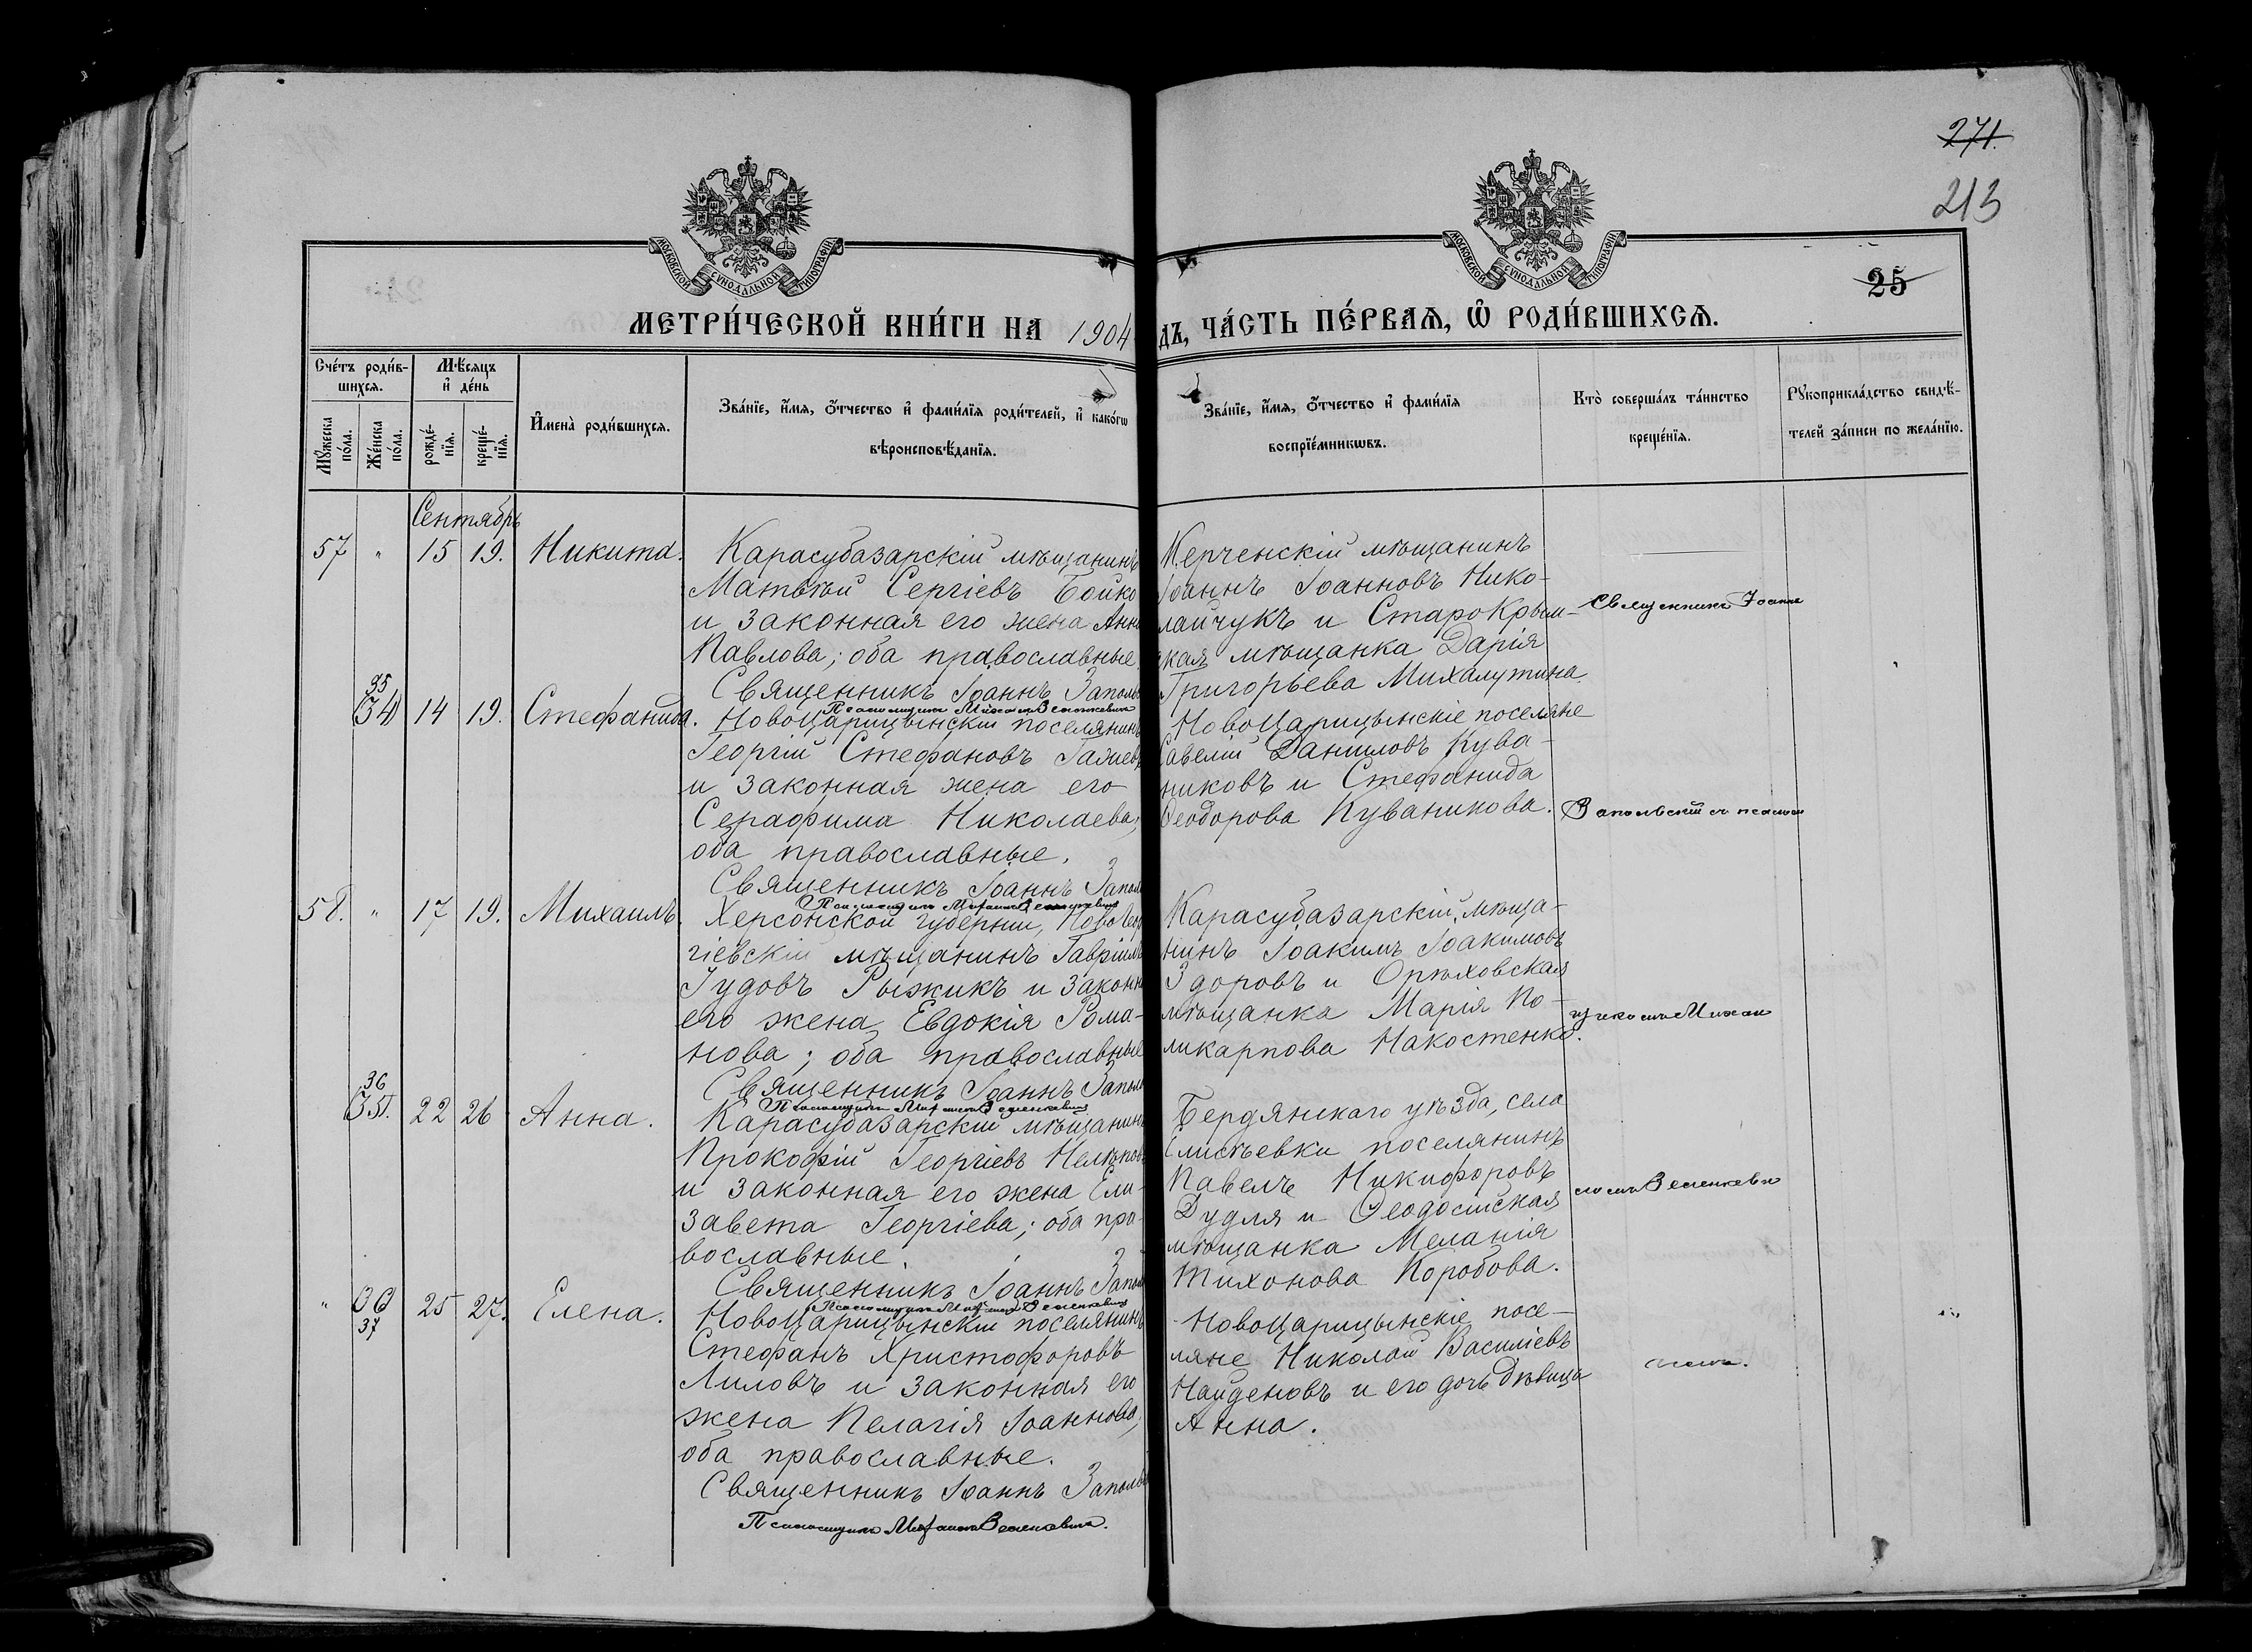 271.
213
МОСКОВСКОЙ СѴНОДАЛЬНОЙ ТИПОГРАФІИ
МОСКОВСКОЙ СѴНОДАЛЬНОЙ ТИПОГРАФІИ
25
МЕТРИ́ЧЕСКОЙ КНИ́ГИ НА 1904
ДЪ, ЧА́СТЬ ПЕ́РВАѦ, Ѡ РОДИ́ВШИХСѦ.
Сче́тъ роди́в-
шихсѧ.
Мѣ́сѧцъ
и҆ де́нь
Мꙋ́жеска
по́ла.
Же́нска
по́ла.
рожде́-
нїѧ.
креще́-
нїѧ.
И҆мена̀ роди́вшихсѧ.
Зва́нїе, и҆́мѧ, ѻ҆́тчество и҆ фами́лїѧ роди́телей, и҆ како́гѡ
вѣроисповѣ́данїѧ.
Зва́нїе, и҆́мѧ, ѻ҆́тчество и҆ фами́лїѧ
воспрїе́мникѡвъ.
Кто̀ соверша́лъ та́инство
креще́нїѧ.
Рꙋкоприкла́дство свидѣ́-
телей за́писи по жела́нїю.
Сентябрь
57 " 15 19. Никита.
Карасубазарскій мѣщанинъ
Матѳѣй Сергіевъ Бойко
и законная его жена Анна
Павлова; оба православные.
Священникъ Іоаннъ Заполь
Псаломщикъ Михаилъ
Керченскій мѣщанинъ
Іоаннъ Іоанновъ Нико-
лайчукъ и СтароКрым-
ская мѣщанка Дарія
Григорьева Михалутина.
Священникъ Іоаннъ
35
34 14 19. Стефанида.
НовоЦарицынскій поселянинъ
Георгій Стефановъ
и законная жена его
Серафима Николаева;
оба православные.
Священникъ Іоаннъ Запол
Псаломщикъ Михаилъ
НовоЦарицынскіе поселяне
Савелій Даниловъ Кува-
никовъ и Стефанида
Ѳеодорова Куваникова.
Запольскій съ псалом
58. " 17 19. Михаилъ.
Херсонской губерніи, НовоГеор
гіевскій мѣщанинъ Гавріилъ
Іудовъ Рыжикъ и законн
его жена Евдокія Рома-
нова; оба православные
Священникъ Іоаннъ Запол
Псаломщикъ Михаилъ
Карасубазарскій мѣща-
нинъ Іоакимъ Іоакимовъ
Здоровъ и Орѣховская
мѣщанка Марія По-
ликарпова Накостенко.
щикомъ Михаи
36
35. 22 26 Анна.
Карасубазарскій мѣщанинъ
Прокофій Георгіевъ
и законная его жена Ели-
завета Георгіева; оба пра-
вославные.
Священникъ Іоаннъ Запол
Псаломщикъ Михаилъ
Бердянскаго уѣзда, села
Елисѣевки поселянинъ
Павелъ Никифоровъ
Дудля и Ѳеодосійская
мѣщанка Меланія
Тихонова Коробова.
" 36 25 27. Елена.
37
НовоЦарицынскій поселянинъ
Стефанъ Христофоровъ
Лиловъ и законная его
жена Пелагія Іоаннова;
оба православные.
Священникъ Іоаннъ Заполь
Псаломщикъ Михаилъ
НовоЦарицынскіе посе-
ляне Николай Василіевъ
Найденовъ и его дочь дѣвица
Анна.